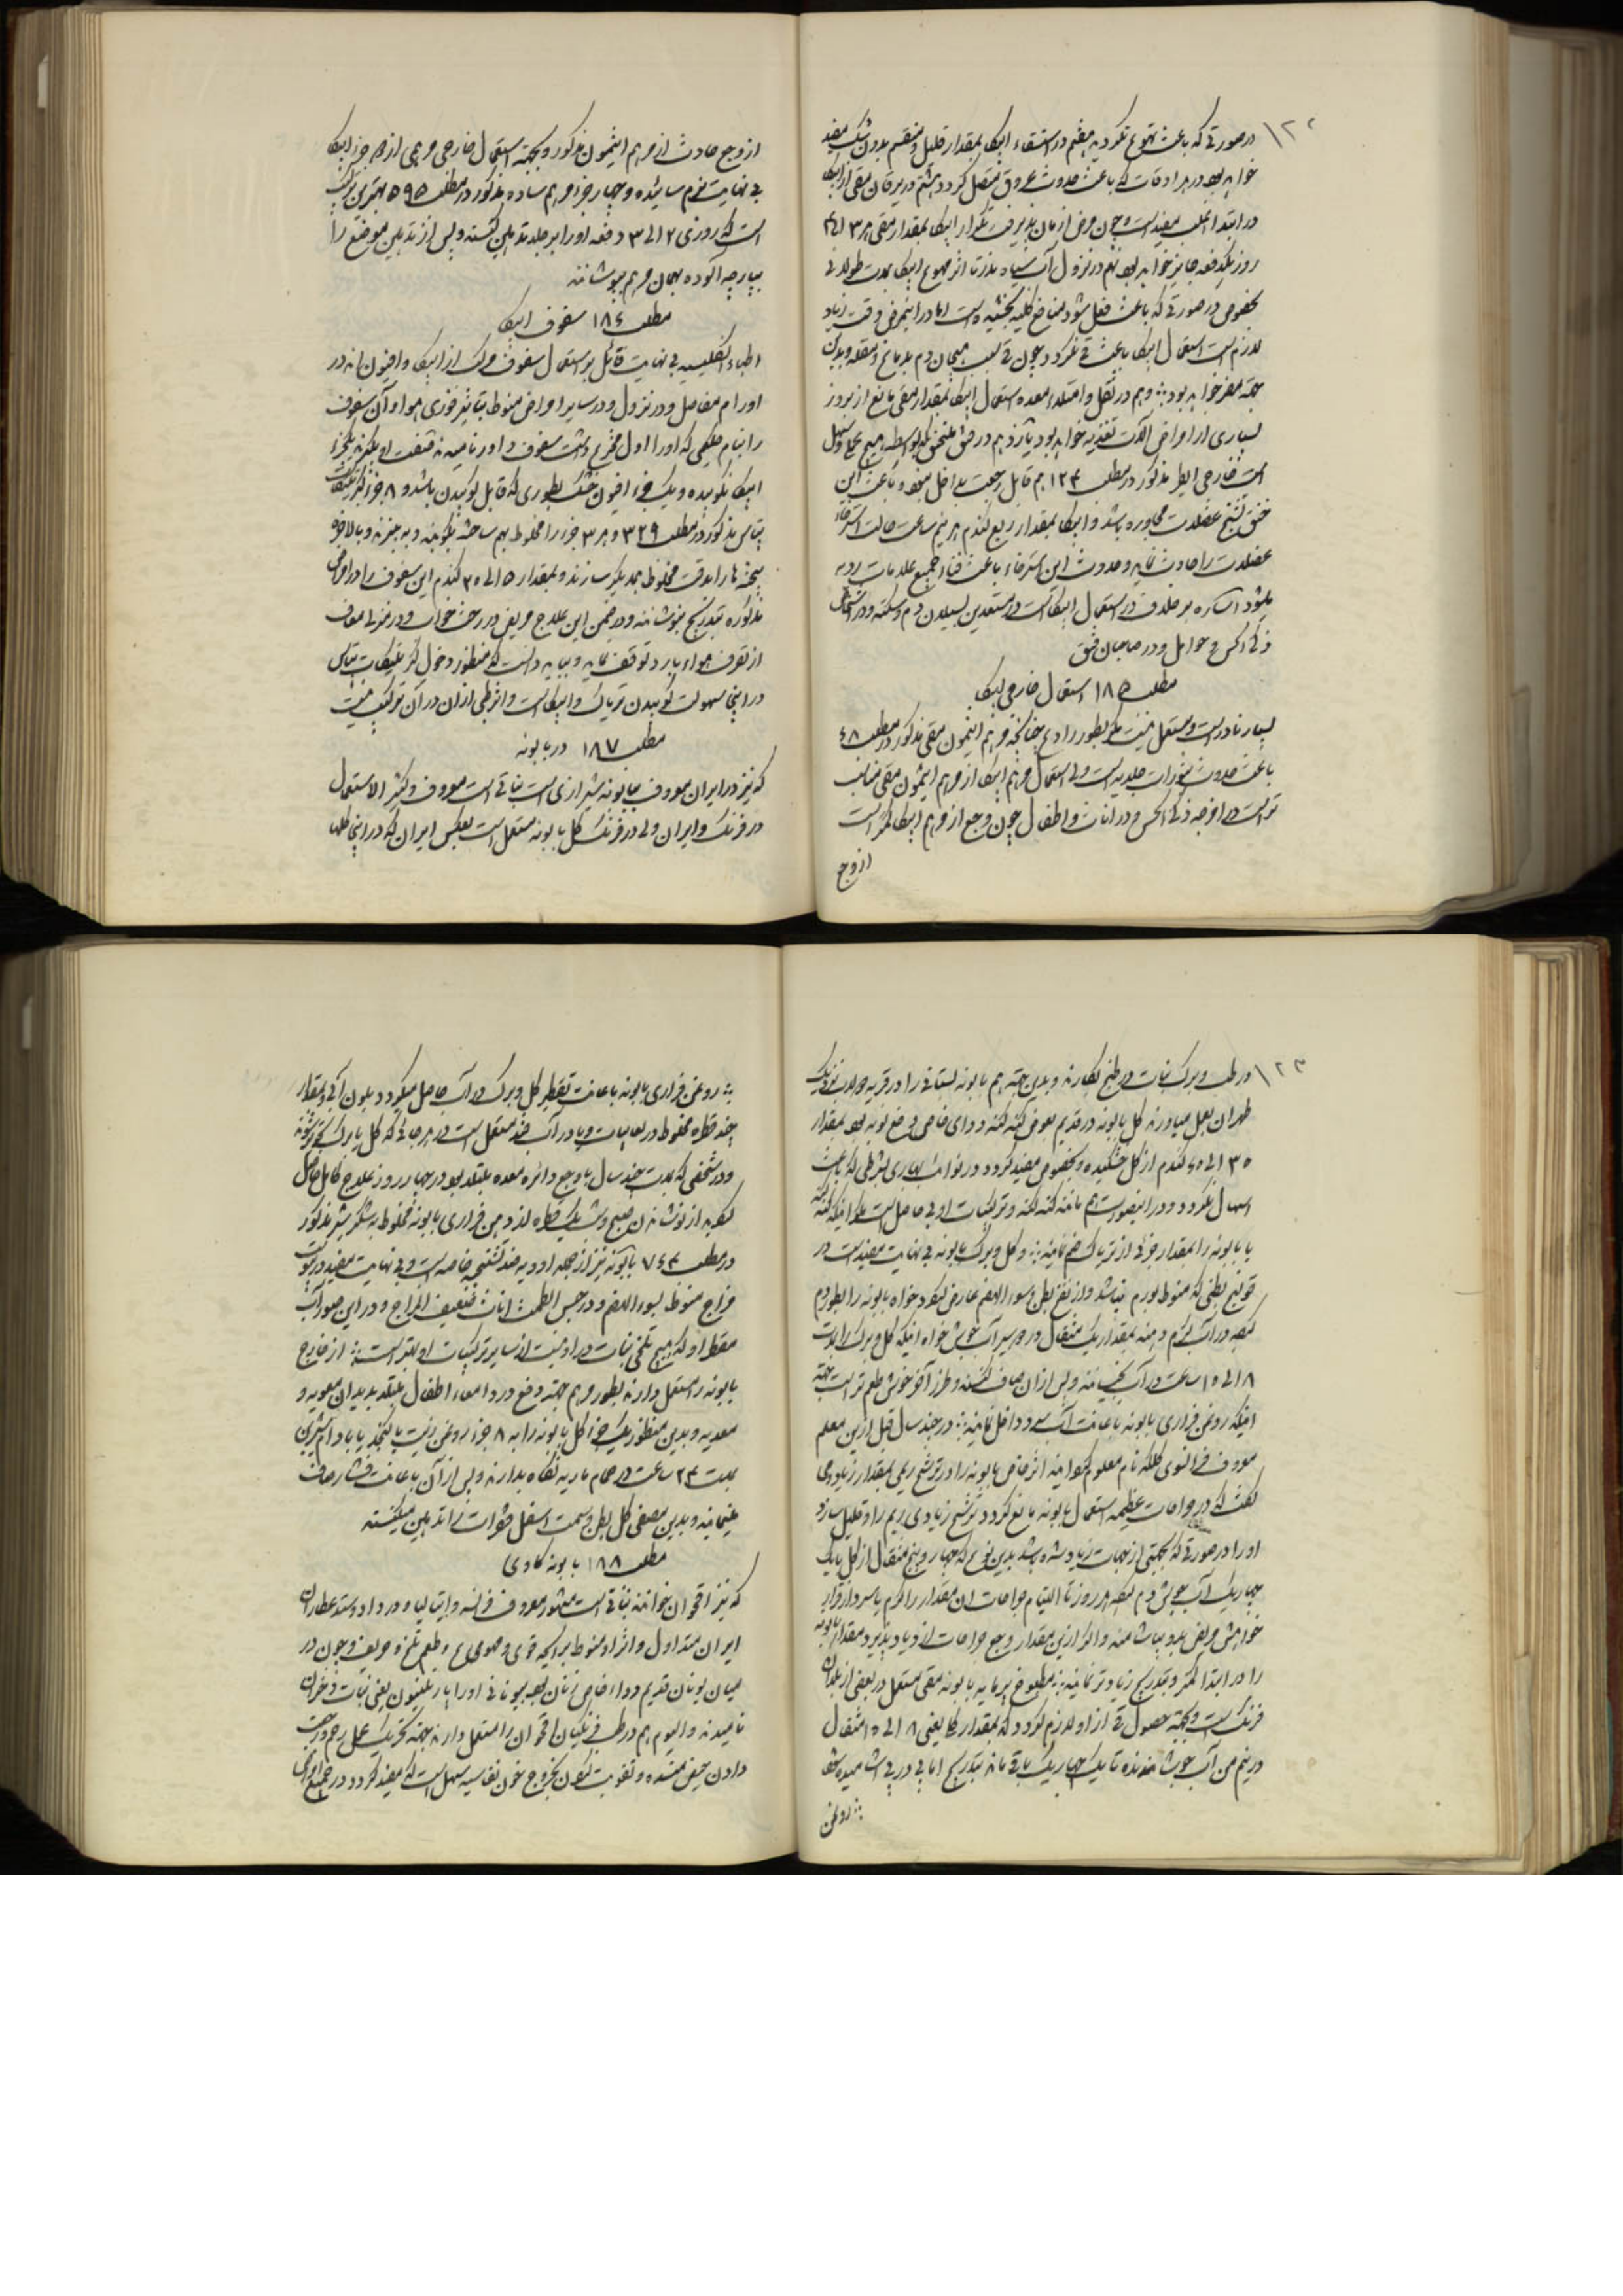 ۱۲۲
در صورتی که باعث تهوع نگردید هفتم در استسقاء ایپکا بمقدار قلیل و منقسم بدون شک مفید
خواهد بود در هر اوقات که باعث حدوث عروق متصل گردد هشتم در یرقان مقی از ایپکا
در ابتدا اغلب مفید است و چون مرض ازمان پذیرفت تکرار ایپکا بمقدار مقی هر ۳ الی ۴
روز یکدفعه جایز خواهد بود نهم در نزول آب سیاه ندرتا اثر مهوع ایپکا بمدت طولانی
بخصوص در صورتی که باعث فعل شود منافع کلیه بخشیده است اما در اینمرض وقت زیاد
لازم است استعمال ایپکا باعث قی نگردد چون قی بسبب هیجان دم بدماغ و مقله و بدین
جهة مضر خواهد بود دهم در ثقل و امتلاء معده استعمال ایپکا بمقدار مقی مانع از بروز
بسیاری از امراض آلات تغذیه خواهد بود یازدهم در فتق مختنق که بواسطه هیچ علاج سهل
است خارجی الیطر مذکور در مطلب ۱۲۴ هم قابل رجعت بداخل نبوده و باعث این
خنق تشنج عضلات مجاوره باشد و ایپکا بمقدار ربع گندم هر نیم ساعت حالت استرخاء
عضلات را حادث نماید و حدوث این استرخاء باعث فناء جمیع علامات ردیه
میشود اشاره بر خلاف در استعمال ایپکا است در مستعدین بسیلان دم و سکته و در اشخاص
ذکی الحس و حوامل و در صاحبان فتق
مطلب ۱۸۵ استعمال خارجی ایپکا
بسیار نادر است و مستعمل نیست مگر بطور رادع چنانچه مرهم انتیمون مقی مذکور در مطلب ۴۸
باعث حدوث بثورات جلدیه است ولی استعمال مرهم ایپکا از مرهم انتیمون مقی مناسب
تر است در امزجه ذکی الحس و در اناث و اطفال چون وجع از مرهم ایپکا کمتر است
از وجع
از وجع حادث از مرهم انتیمون مذکور و بجهة استعمال خارجی مرهمی از ۱۵ جزء ایپکا
بی نهایت نرم سائیده و چهار جزء مرهم ساده مذکور در مطلب ۵۹۵ بهترین ترکیب
است که روزی ۲ الی ۳ دفعه اورا بر جلد تدهین کنند و پس از تدهین موضع را
بپارچه آلوده بهمان مرهم بپوشانند
مطلب ۱۸۶ سفوف ایپکا
اطباء انگلیسیه بی نهایت قائل بر استعمال سفوف مرکب از ایپکا و افیون اند در
اورام مفاصل و در نزول و در سایر امراض منوط بتاثیر فوری هوا و آن سفوف
را بنام حکیمی که اورا اول مخترع داشت سفوف د اور نامیدند صنعت او بگیرند یکجزء
ایپکا نکوبیده و یک جزء افیون خشک بطوری که قابل کوبیدن باشد و ۸ جزء کبریتات
پتاس مذکور در مطلب ۳۲۹ و هر ۳ جزء را مخلوط بهم ساخته بکوبند و به بیزند و بالاخره
بیخته ها را بدقت مخلوط بهمدیگر سازند و بمقدار ۱۵ الی ۳۰ گندم این سفوف را در امراض
مذکوره بتدریج بنوشانند و در ضمن این علاج مریض در رخت خواب و در منزل معاف
از تصرف هواء بارد توقف نماید و بباید دانست که منظور دخول کبریتات پتاس
در اینجا سهولت کوبیدن تریاک و ایپکا است و اثر طبی از آن در آن ترکیب نیست
مطلب ۱۸۷ در بابونه
که نیز در ایران معروف ببابونه شیرازی است نباتی است معروف و کثیر الاستعمال
در فرنگ و ایران ولی در فرنگ گل بابونه مستعمل است بعکس ایران که در اینجا گلها
۱۲۳
در طب و برگ نبات در طبخ بکار برند و بدین جهة هم بابونه بستانی را در قریه دولاب نزدیک
طهران بعمل میاورند گل بابونه در قدیم بعوض گنه گنه و دوای خاص دفع نوبه بود بمقدار
۳۰ الی ۶۰ گندم از گل خشکیده و بخصوص مفید گردد در نوائب بهاری بشرطی که باعث
اسهال نگردد و در اینصورت هم مانند گنه گنه و ترکیبات او بی حاصل است مگر اینکه گنه گنه
یا بابونه را بمقدار جزئی از تریاک ضم نمایند و گل و برگ بابونه بی نهایت مفید است در
قولنج بطنی که منوط بورم نباشد و از نفخ بطن و سوء الهضم عارض گردد خواه بابونه را بطور دم
کرده در آب گرم دهند بمقدار یک مثقال در ده سیر آب جوش خواه اینکه گل و برگ را بمدت
۸ الی ۱۰ ساعت در آب بخیسانند و پس از آن صاف کنند و طرز آخر خوش طعم تر است بجهة
اینکه روغن فراری بابونه باعانت آب سرد داخل نمایند در چند سال قبل از این معلم
معروف فرانسوی کلکه نام معلوم گردانید اثر خاص بابونه را در ترشح ریمی بمقدار زیاد و می
گفت که در جراحات عظیمه استعمال بابونه مانع گردد ترشح زیادی ریم را و قلیل سازد
او را در صورتی که بجهتی از جهات زیاد شده باشد بدین نوع که چهار و پنج مثقال از گل بابونه
چهاریک آب جوش دم کرده هر روز تا التیام جراحات ان مقدار را گرم یا سرد از قرار
خواهش مریض بدو بیاشامند و اگر از این مقدار وجع جراحات ازدیاد پذیرد مقدار بابونه
را در ابتدا کمتر و بتدریج زیادتر نمایند مطبوخ پرمایه بابونه مقی مستعمل در بعضی از بلدان
فرنگ است و بجهة حصول قی از او لازم گردد که بمقدار گلا یعنی ۸ الی ۱۵ مثقال
در نیم من آب جوشانیده تا یک چهاریک باقی ماند بتدریج اما پی در پی اشامیده شود
روغن
روغن فراری بابونه باعانت تقطیر گل و برگ در آب حاصل میگردد و بلون آبی و بمقدار
چند قطره مخلوط در لعابیات و یا در آب قند مستعمل است در هر جائی که گل یا برگ تجویز شده
و در شخصی که بمدت چند سال با وجع دائره معده مبتلا بود در چهار روز علاج کامل حاصل
گردید از نوشانیدن صبح و شب یک قطره از روغن فراری بابونه مخلوط به شکر شیر مذکور
در مطلب ۷۴۳ بابونه نیز از جمله ادویه ضد تشنجیه خاصه است و بی نهایت مفید در
مزاج منوط بسوء الهضم و در حبس الطمث اناث ضعیف المزاج و در این صور آب
مقطر او که هیچ تلخی نبات در او نیست از سایر ترکیبات او بهتر است از خارج
بابونه را مستعمل دارند بطور مرهم جهة دفع درد امعاء اطفال مبتلا بدیدان معویه و
معدیه و بدین منظور یک جزء گل بابونه را به ۸ جزء روغن زیت یا کنجد یا بادام شیرین
بمدت ۲۴ ساعت در حمام ماریه نگاه بدارند و پس از آن باعانت فشار صاف
مینمایند و بدین مصفی کل بطن و سمت اسفل فقرات را تدهین میکنند
مطلب ۱۸۸ بابونه گاوی
که نیز اقحوان خوانند نباتی است مشهور معروف فرانسه و ایتالیا و در داد و ستد عطاران
ایران متداول و اثر او منوط برائحه قوی و طعم تلخ و حریف و چون در
میان یونان قدیم دواء خاص زنان بود یونانی اورا پارتنیون یعنی نبات دختران
نامیدند و الیوم هم در طب فرنگیان اقحوان را مستعمل دارند بجهة تحریک عمل رحم و رجعت
دادن حیض منسده و تقویت کردن بخروج خون نفاسیه سهل است که مفید گردد در جمیع